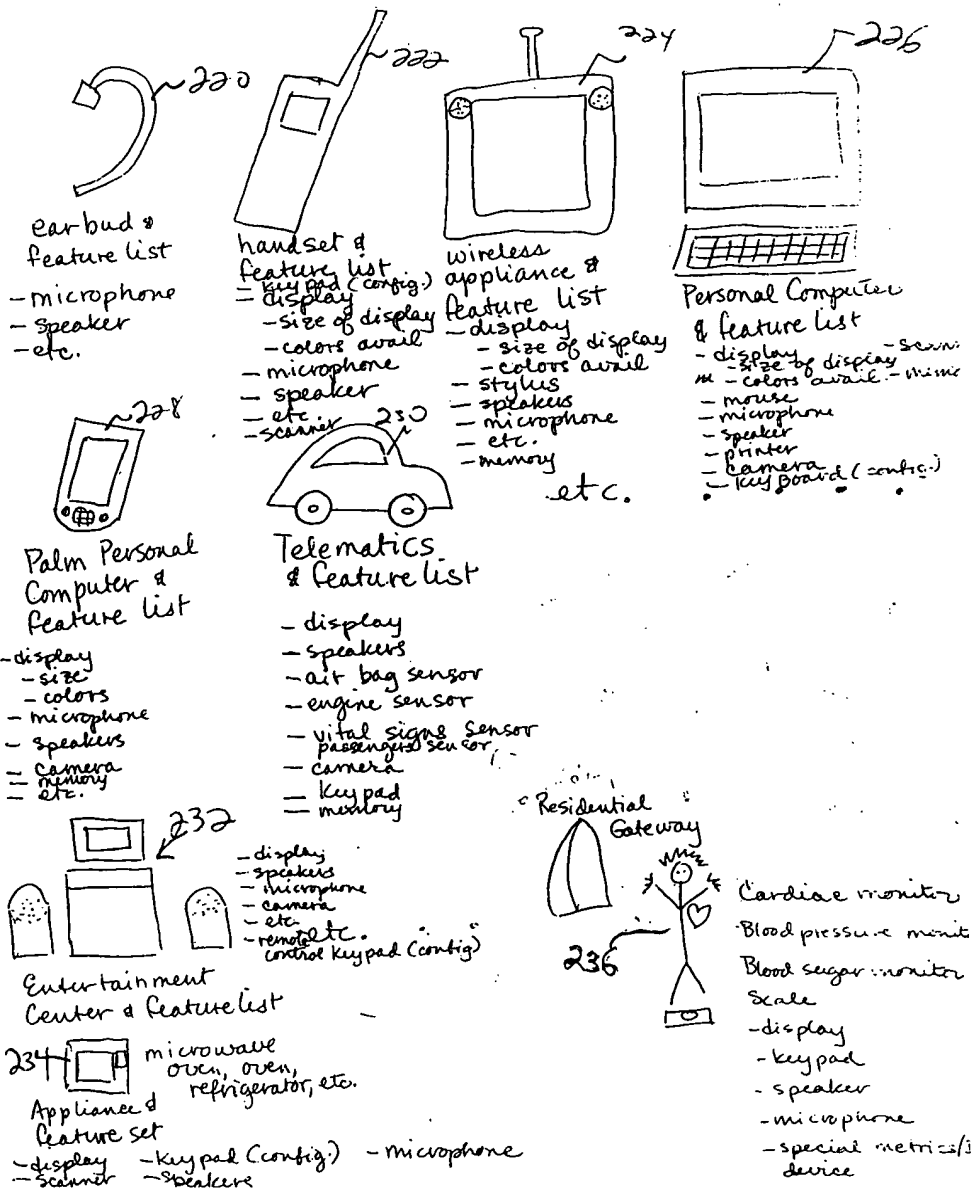 220
222
224
226
ear bud &
feature list
- microphone
- speaker
- etc.
handset &
feature list
- keypad (config.)
- display
- size of display
- colors avail
- microphone
- speaker
- etc.
- scanner
wireless
appliance &
feature list
- display
- size of display
- colors avail
- stylus
- speakers
- microphone
- etc.
- memory
etc.
Personal Computer
& feature list
- display
- size of display
- colors avail.
- mouse
- microphone
- speaker
- printer
- camera
- keyboard (config.)
228
Palm Personal
Computer &
feature list
- display
- size
- colors
- microphone
- speakers
- camera
- memory
- etc.
230
Telematics
& feature list
- display
- speakers
- air bag sensor
- engine sensor
- vital signs sensor
passengers sensor
- camera
- keypad
- memory
232
- display
- speakers
- microphone
- camera
- etc.
- remote etc.
control keypad (config)
Entertainment
Center & feature list
234
microwave
oven, oven,
refrigerator, etc.
Appliance &
feature set
- display - keypad (config.) - microphone
- scanner - speakers
Residential
Gateway
236
Cardiac monitor
Blood pressure monit
Blood sugar monitor
Scale
- display
- keypad
- speaker
- microphone
- special metrics/
device